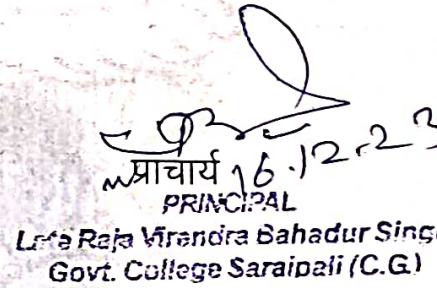 प्राचार्य 16.12.23
PRINCIPAL
Late Raja Virendra Bahadur Sing
Govt. College Saraipali (C.G.)